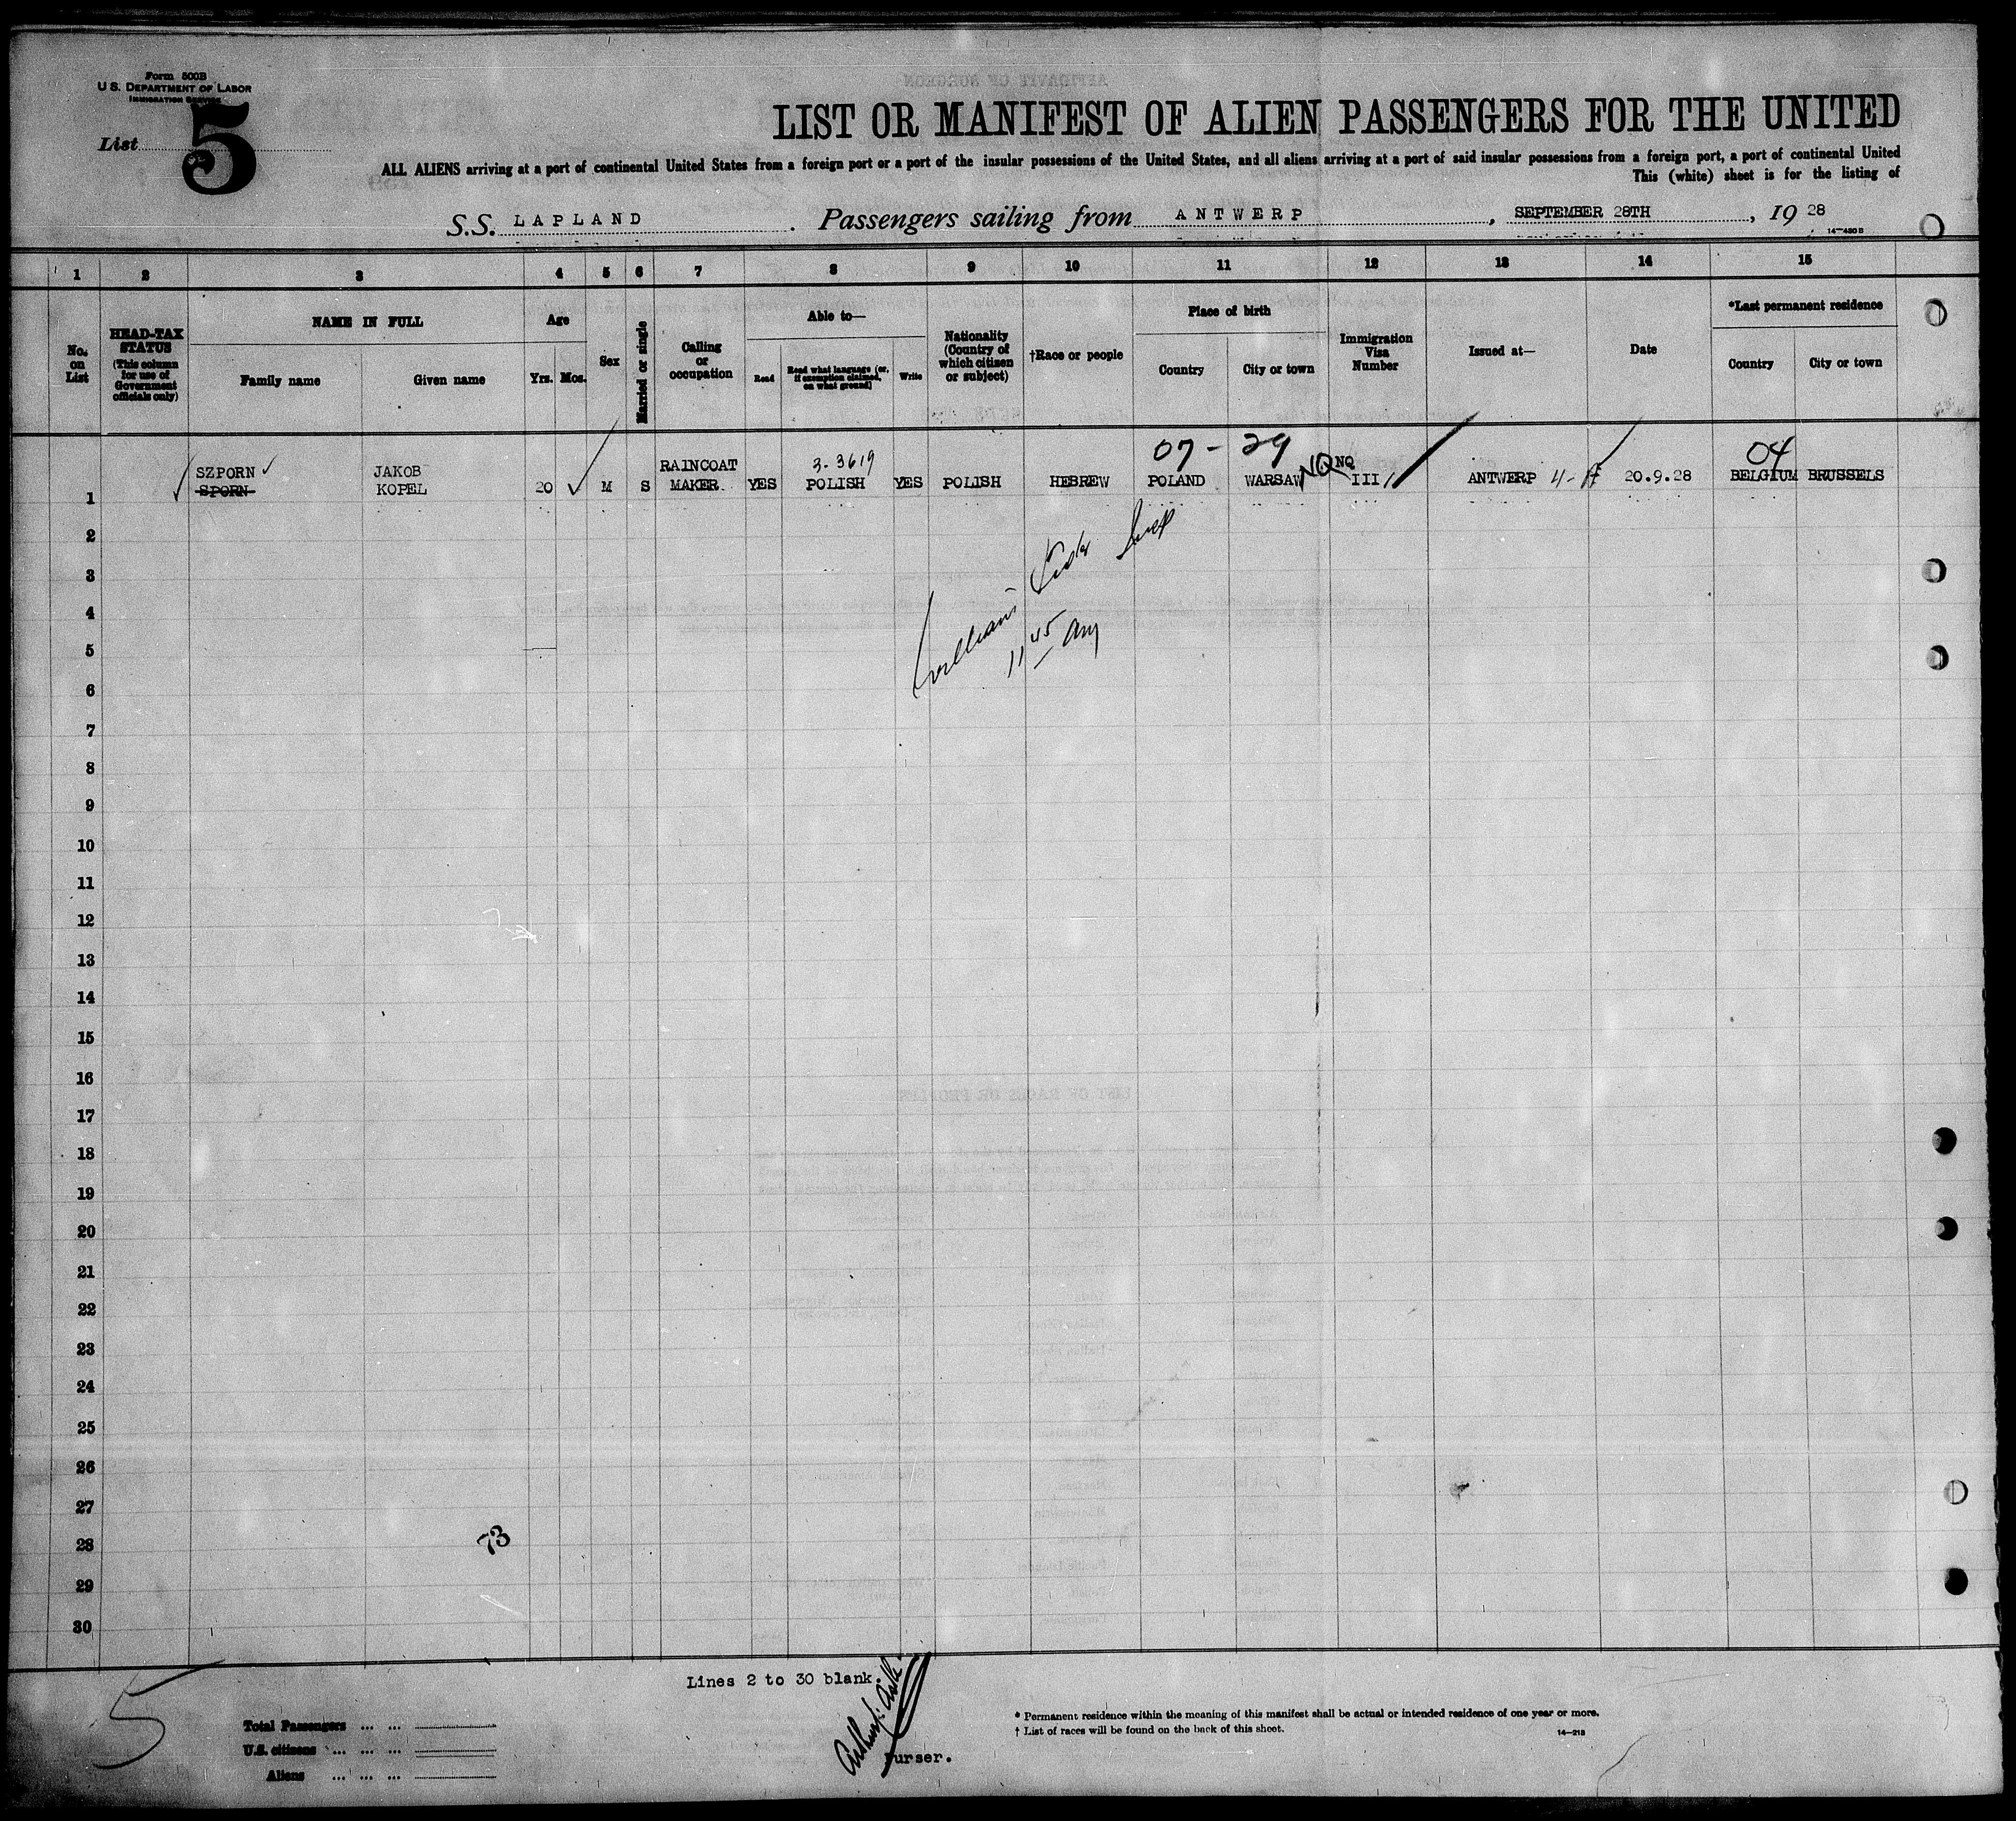 Form 500B
U.S. DEPARTMENT OF LABOR
IMMIGRATION SERVICE
List 5
LIST OR MANIFEST OF ALIEN PASSENGERS FOR THE UNITED
ALL ALIENS arriving at a port of continental United States from a foreign port or a port of the insular possessions of the United States, and all aliens arriving at a port of said insular possessions from a foreign port, a port of continental United
This (white) sheet is for the listing of
S.S. LAPLAND. Passengers sailing from ANTWERP, SEPTEMBER 28TH, 19 28
14—480 B
1 2 3 4 5 6 7 8 9 10 11 12 13 14 15
No. on List
HEAD-TAX STATUS (This column for use of Government officials only)
NAME IN FULL
Family name
Given name
Age
Yrs. Mos.
Sex
Married or single
Calling or occupation
Able to—
Read
Read what language (or, if exemption claimed, on what ground)
Write
Nationality (Country of which citizen or subject)
†Race or people
Place of birth
Country
City or town
Immigration Visa Number
Issued at—
Date
*Last permanent residence
Country
City or town
07 - 29
04
SZPORN JAKOB RAINCOAT 3-3619 NQ NQ
1 SPORN KOPEL 20 M S MAKER YES POLISH YES POLISH HEBREW POLAND WARSAW III ANTWERP 20.9.28 BELGIUM BRUSSELS
2
3
4
11 45 am
5
6
7
8
9
10
11
12
13
14
15
16
17
18
19
20
21
22
23
24
25
26
27
73
28
29
30
5
Lines 2 to 30 blank.
Purser.
Total Passengers ... ...
U.S. citizens ... ... ...
Aliens ... ... ...
* Permanent residence within the meaning of this manifest shall be actual or intended residence of one year or more.
† List of races will be found on the back of this sheet.
14—213